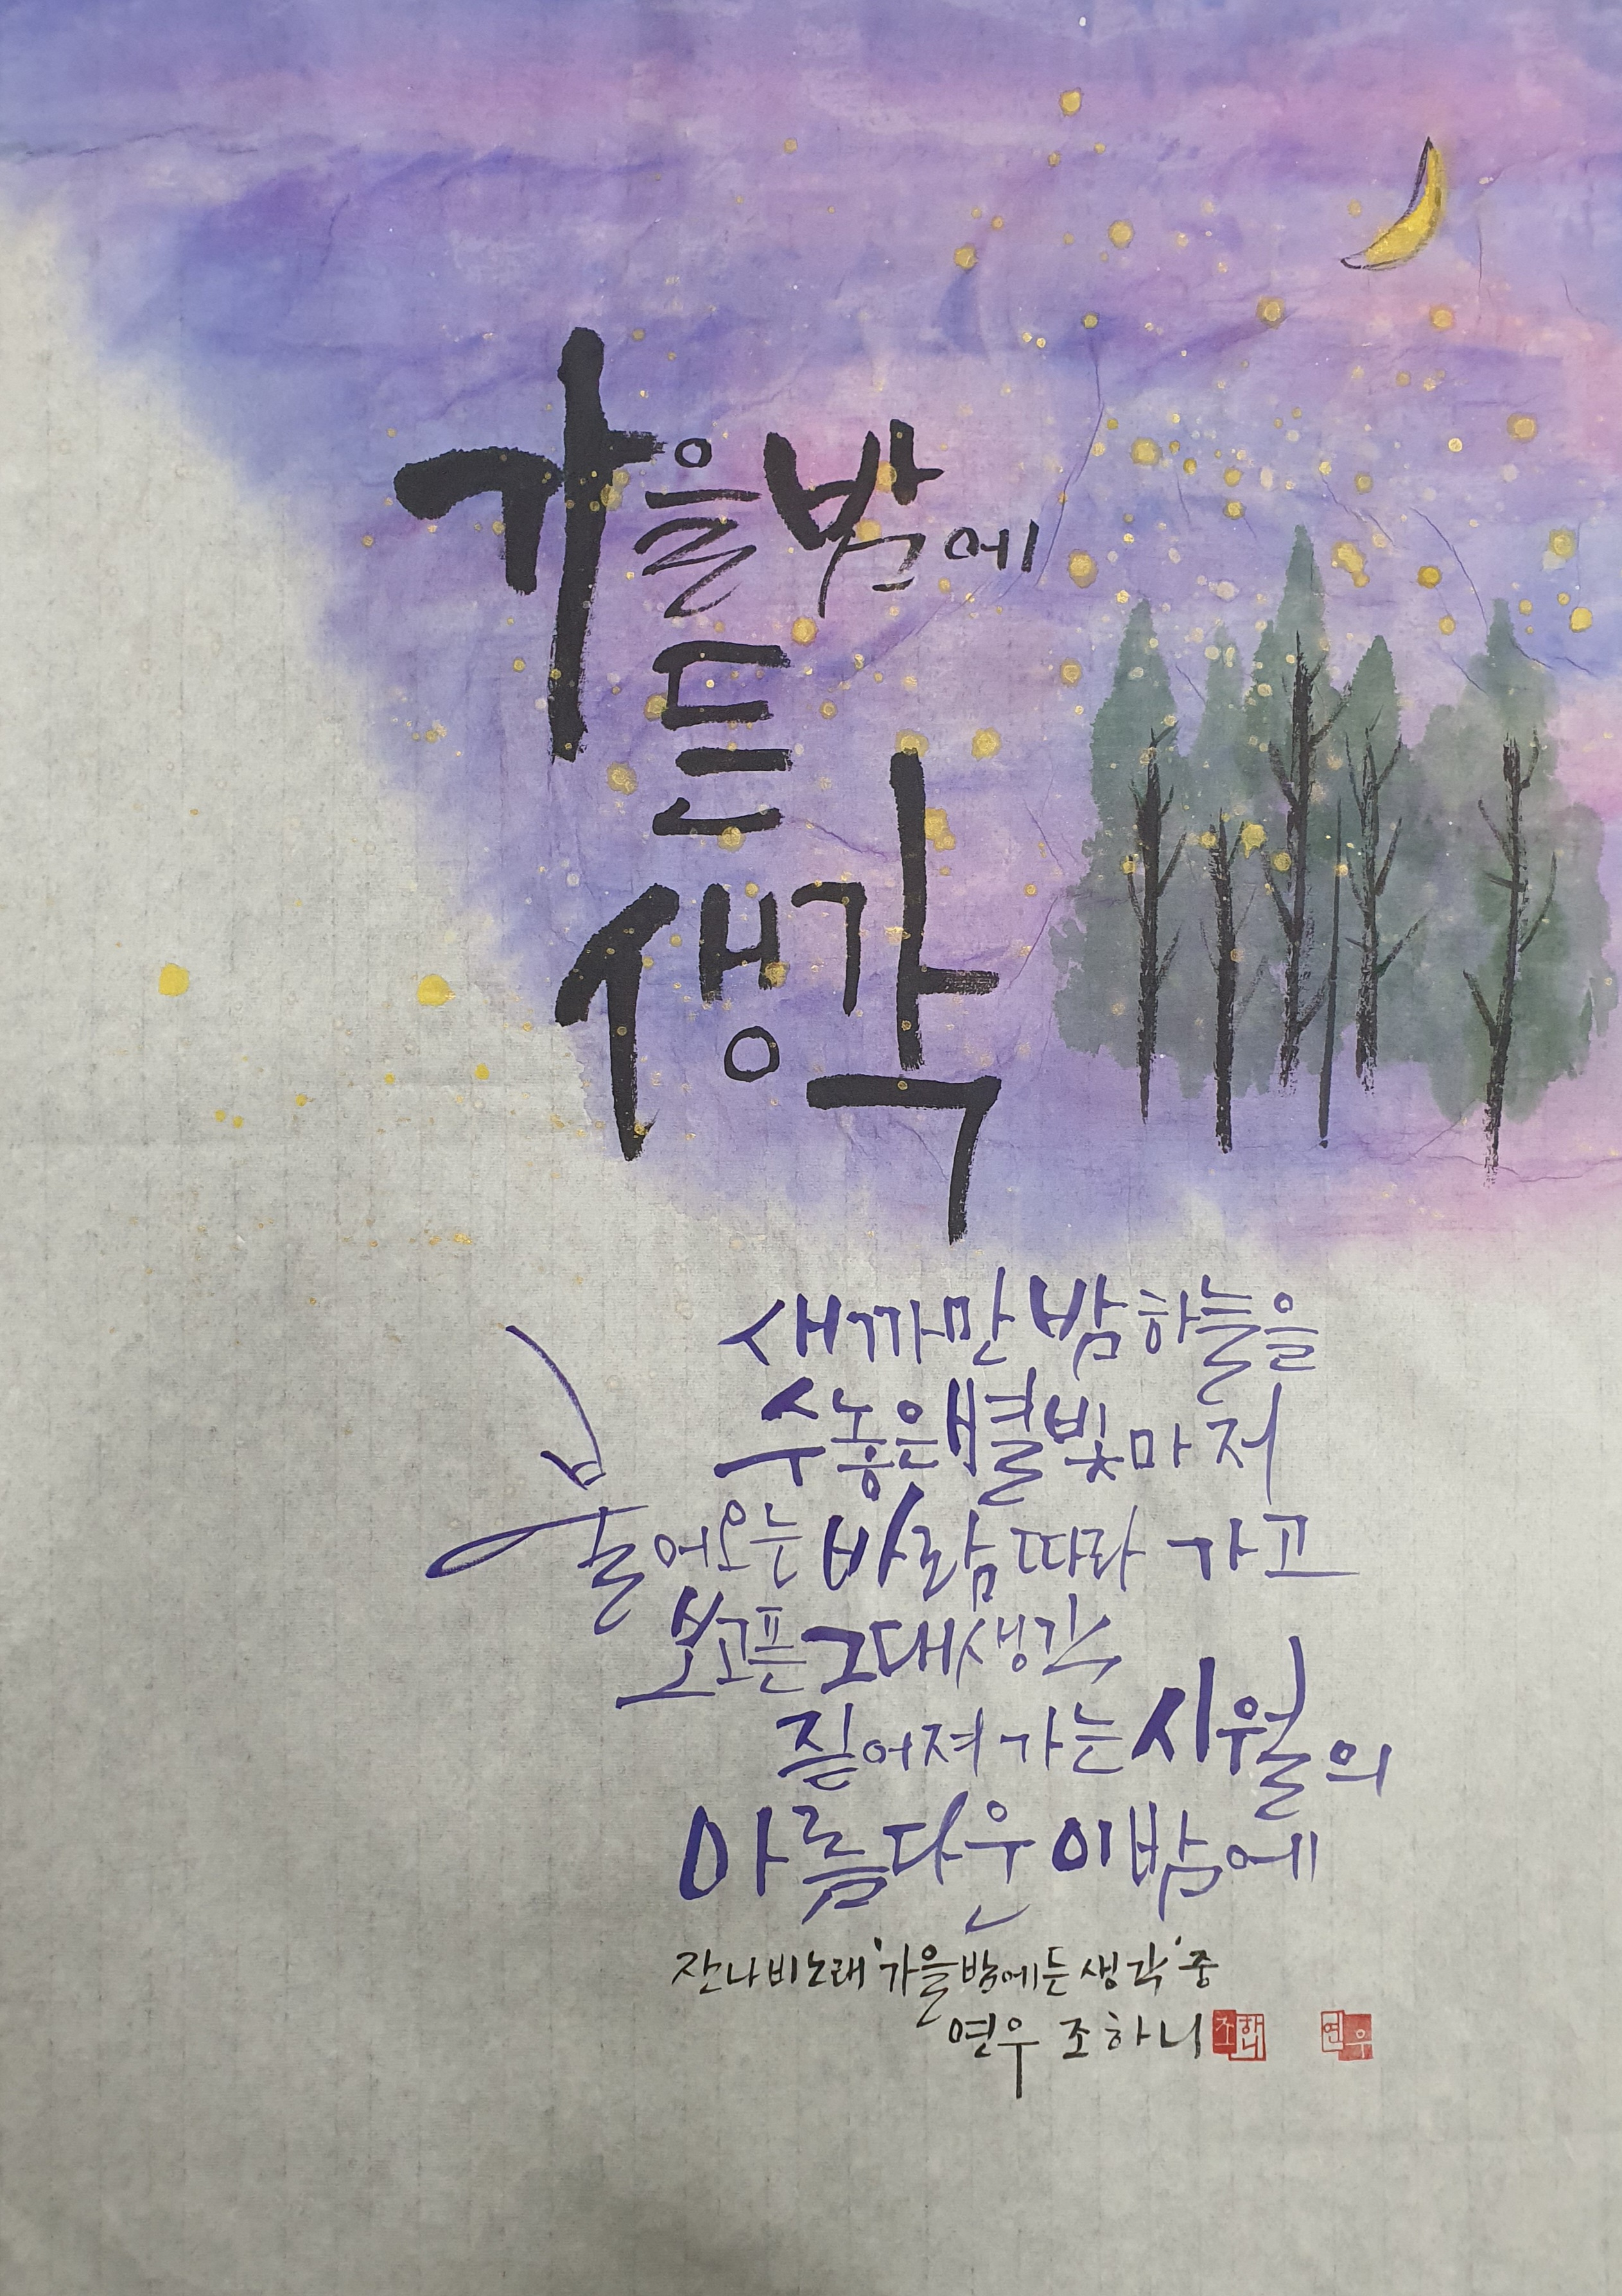 가을밤에
든
생각
새까만 밤하늘을
수놓은 별빛마저
불어오는 바람 따라 가고
보고픈 그대 생각
짙어져 가는 시월의
아름다운 이 밤에
잔나비 노래 '가을밤에 든 생각' 중
연우 조하니 조하니 연우